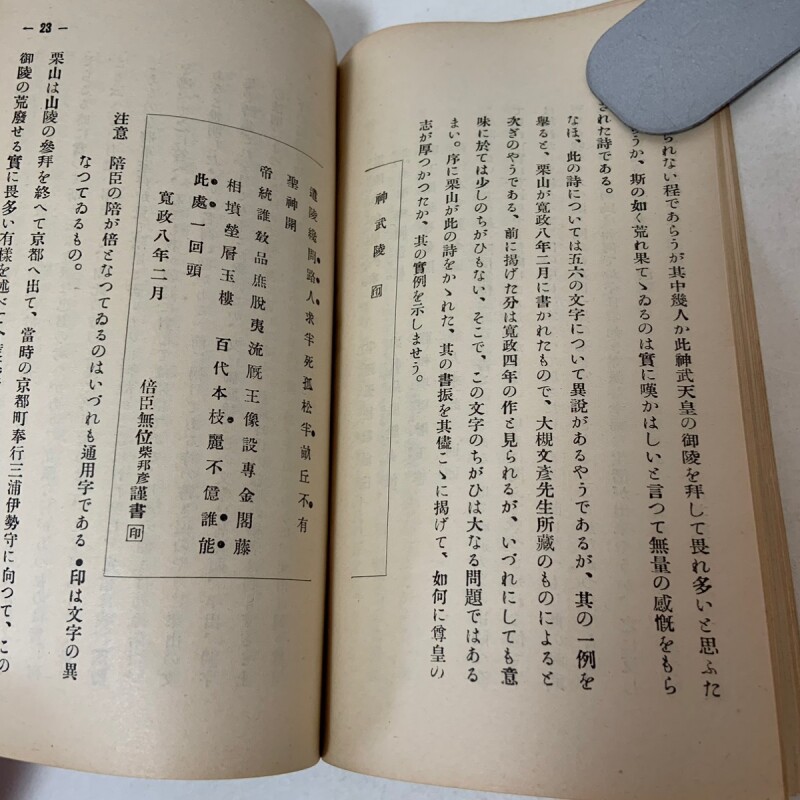 られない程であらうが其中幾人か此神武天皇の御陵を拜して畏れ多いと思ふた
うか、斯の如く荒れ果てゝゐるのは實に嘆かはしいと言つて無量の感慨をもら
された詩である。
なほ、此の詩については五六の文字について異說があるやうであるが、其の一例を
擧ると、栗山が寬政八年二月に書かれたもので、大槻文彥先生所藏のものによると
次ぎのやうである、前に揭げた分は寬政四年の作と見られるが、いづれにしても意
味に於ては少しのちがひもない、そこで、この文字のちがひは大なる問題ではある
まい。序に栗山が此の詩をかゝれた、其の書振を其儘こゝに揭げて、如何に尊皇の
志が厚つかつたか、其の實例を示しませう。
神武陵 印
遺陵纔問路人求半死孤松半畝丘不有
聖神開
帝統誰敎品庶脫夷流厩王像設專金閣藤
相墳塋層玉樓 百代本枝麗不億誰能
此處一回頭
寬政八年二月
倍臣無位柴邦彥謹書 印
注意 陪臣の陪が倍となつてゐるのはいづれも通用字である ●印は文字の異
なつてゐるもの。
栗山は山陵の參拜を終へて京都へ出て、當時の京都町奉行三浦伊勢守に向つて、この
御陵の荒廢せる實に畏多い有樣を述べて、
— 23 —